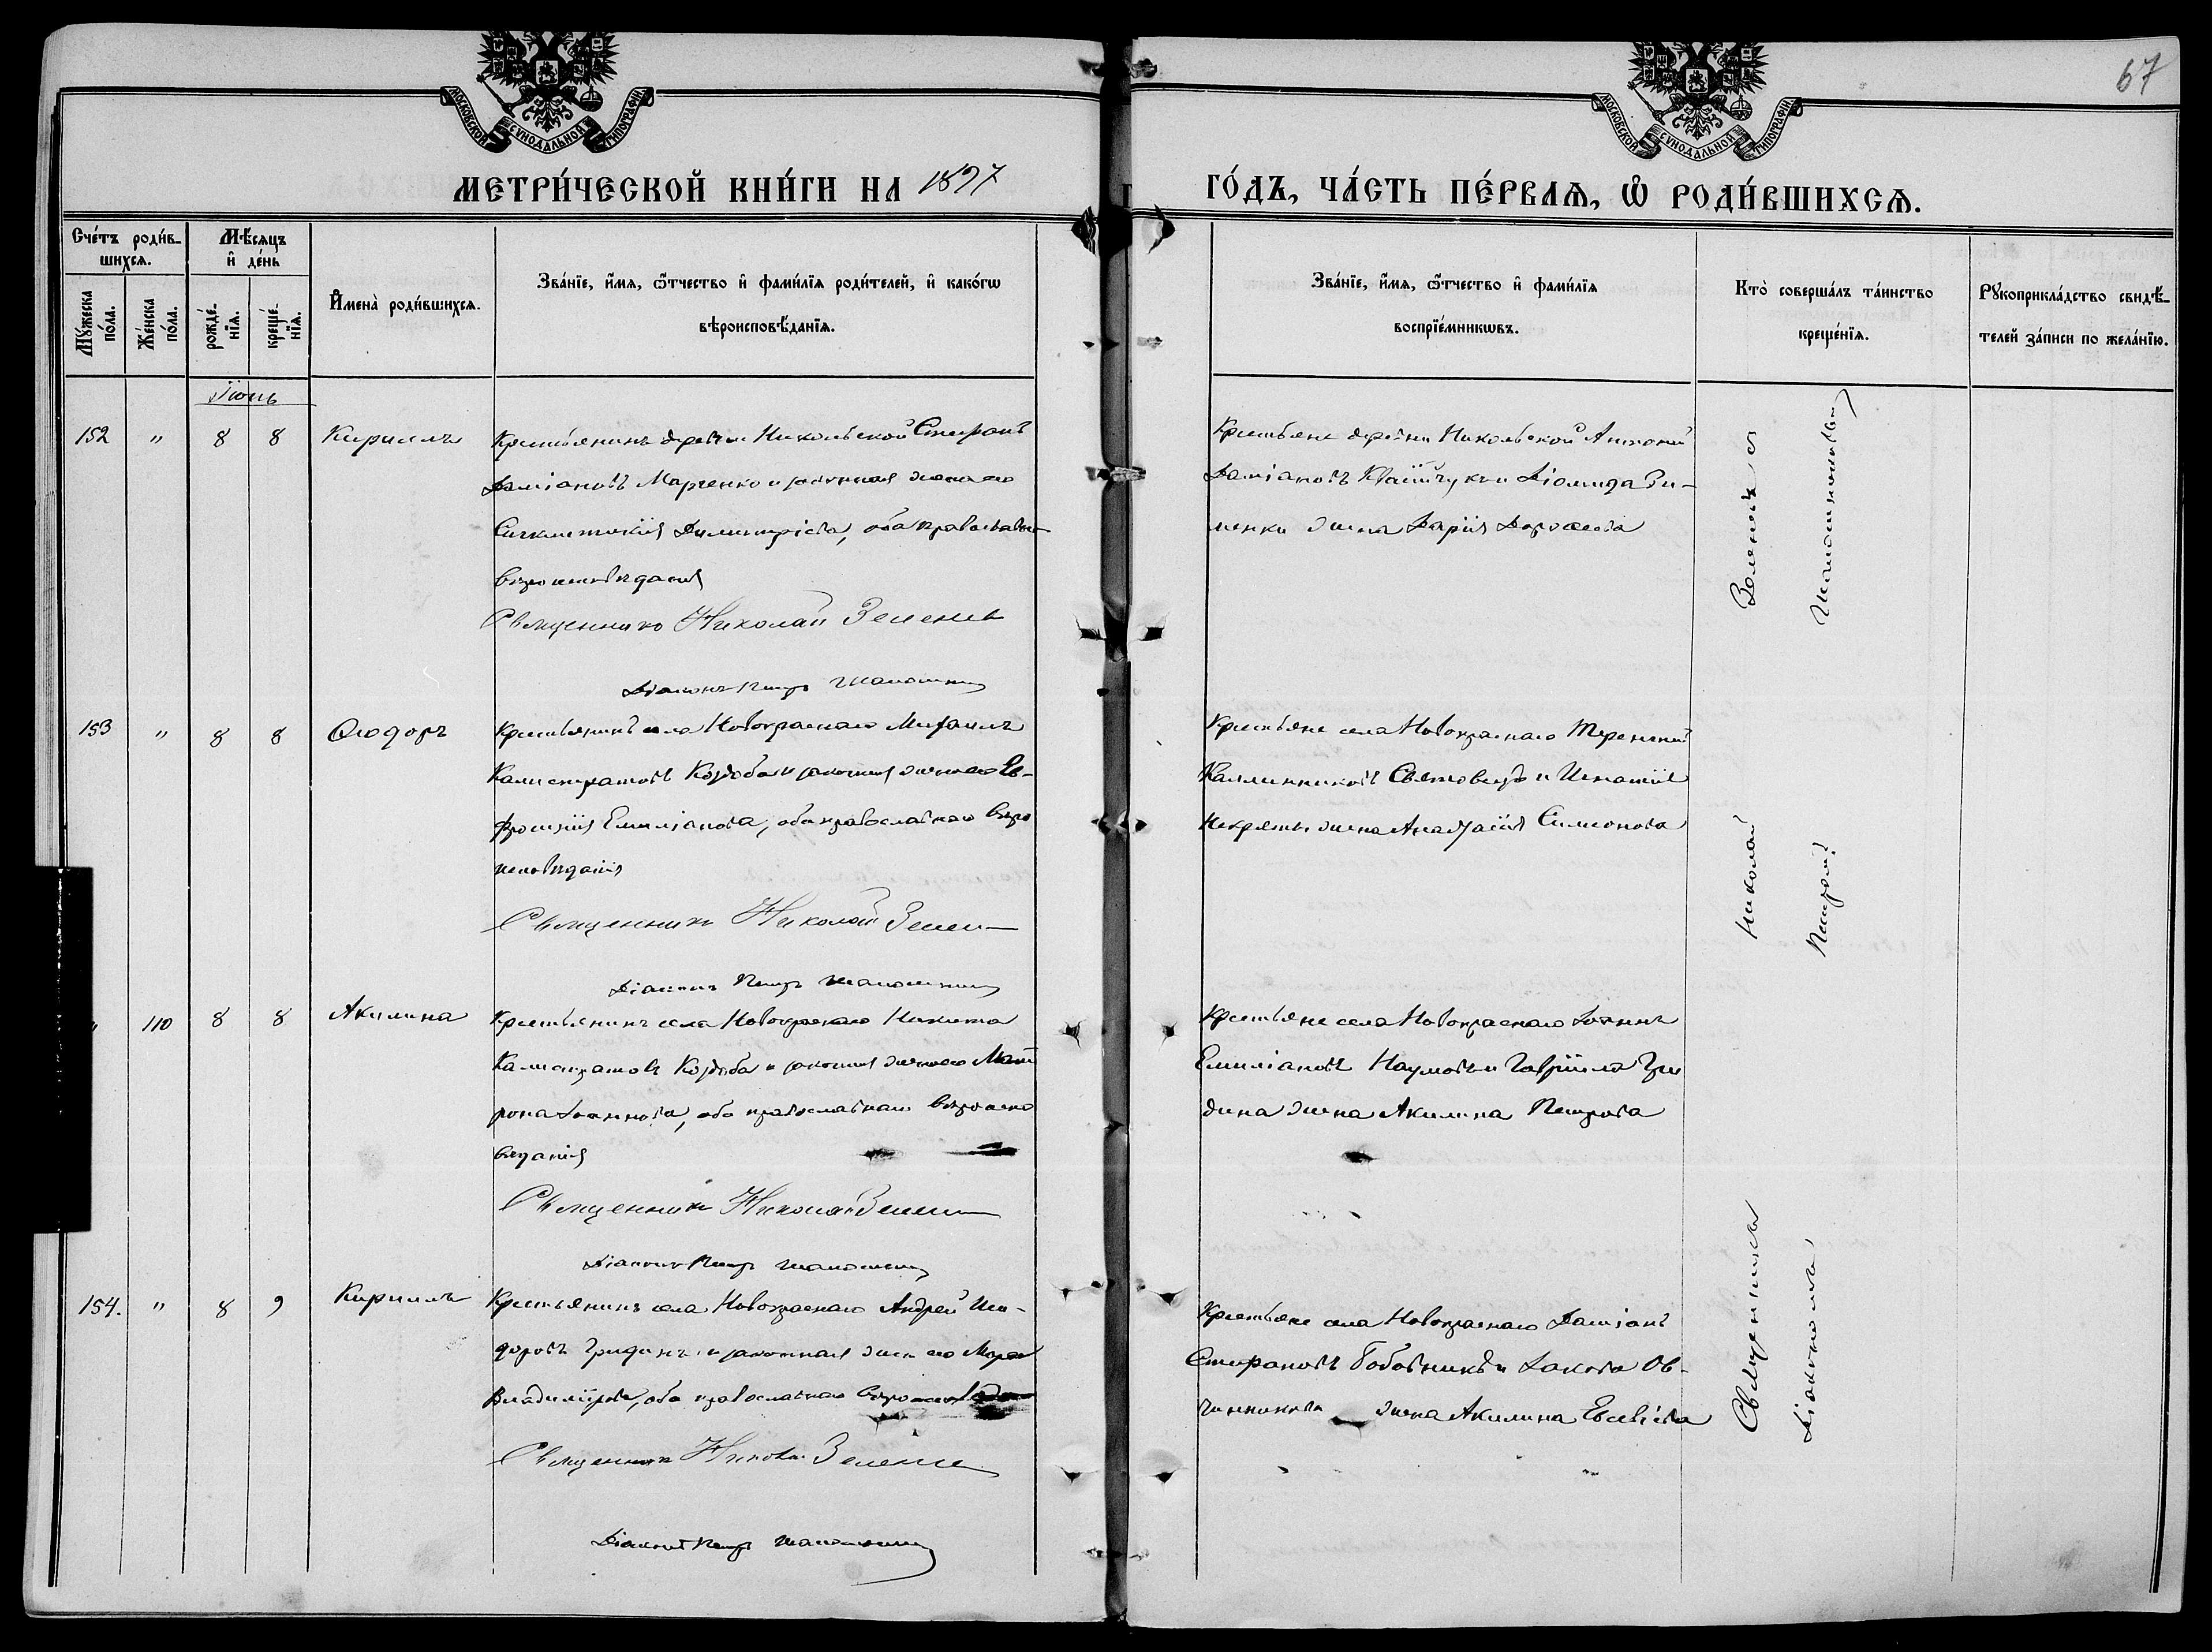 67
МОСКОВСКОЙ СУНОДАЛЬНОЙ ТИПОГРАФІИ
МОСКОВСКОЙ СУНОДАЛЬНОЙ ТИПОГРАФІИ
МЕТРИ́ЧЕСКОЙ КНИ́ГИ НА 1897
ГО́ДЪ, ЧА́СТЬ ПЕ́РВАѦ, Ѡ҆ РОДИ́ВШИХСѦ.
Сче́тъ роди́в-
шихсѧ.
Мѣ́сѧцъ
и҆ де́нь
Мꙋ́жеска
по́ла.
Же́нска
по́ла.
рожде́-
нїѧ.
креще́-
нїѧ.
И҆мена̀ роди́вшихсѧ.
Зва́нїе, и҆́мѧ, ѻ҆́тчество и҆ фами́лїѧ роди́телей, и҆ како́гѡ
вѣроисповѣ́данїѧ.
Зва́нїе, и҆́мѧ, ѻ҆́тчество и҆ фами́лїѧ
воспрїе́мникѡвъ.
Кто̀ соверша́лъ та́инство
креще́нїѧ.
Рꙋкоприкла́дство свидѣ́-
телей за́писи по жела́нїю.
Іюнь
152 " 8 8 Кириллъ
Крестьянинъ дер Никольской Стефанъ
Даміановъ Марченко и законная жена его
Синклитикія Димитріева, оба православн
вѣроисповѣданія
Священникъ Николай Зеленев
Діаконъ Петръ
Крестьяне дер Никольской Антоній
Даміановъ и Діомида Зи-
менки жена Дарія Дороѳеева
153 " 8 8 Ѳеодоръ
Крестьянинъ села Новокраснаго Михаилъ
Калистратовъ Коздоба и законная жена его Ев-
фросинія Емиліанова, оба православнаго вѣро
исповѣданія
Священникъ Николай Зелен
Діаконъ Петръ
Крестьяне села Новокраснаго Терентій
Каллиниковъ и Игнатія
жена Анастасія Симеонова
" 110 8 8 Акилина
Крестьянинъ села Новокраснаго Никита
Калистратовъ Коздоба и законная жена его Мат
рона Іоаннова, оба православнаго вѣроиспо
вѣданія
Священникъ Николай Зелен
Діаконъ Петръ
Крестьяне села Новокраснаго Іоаннъ
Емиліановъ Наумовъ и Гавріила Гри
дина жена Акилина Петрова
154. " 8 9 Кириллъ
Крестьянинъ села Новокраснаго Андрей Иси-
доровъ Гридинъ и законная жена его
Владимірова, оба православнаго
Священникъ Николай Зелене
Діаконъ Петръ
Крестьяне села Новокраснаго Даміанъ
Стефановъ и Іакова Ов-
чинникова жена Акилина Евсевіева
Священникъ Николай
Діаконъ Петръ